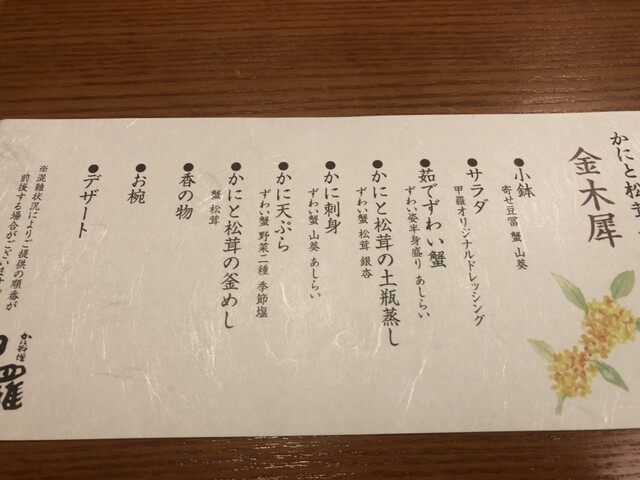 かにと松茸
金木犀
●小鉢
寄せ豆冨 蟹 山葵
●サラダ
甲羅オリジナルドレッシング
●茹でずわい蟹
ずわい姿半身盛り あしらい
●かにと松茸の土瓶蒸し
ずわい蟹 松茸 銀杏
●かに刺身
ずわい蟹 山葵 あしらい
●かに天ぷら
ずわい蟹 野菜二種 季節塩
●かにと松茸の釜めし
蟹 松茸
●香の物
●お椀
●デザート
※混雑状況によりご提供の順番が
前後する場合がございます。
かに料理
羅